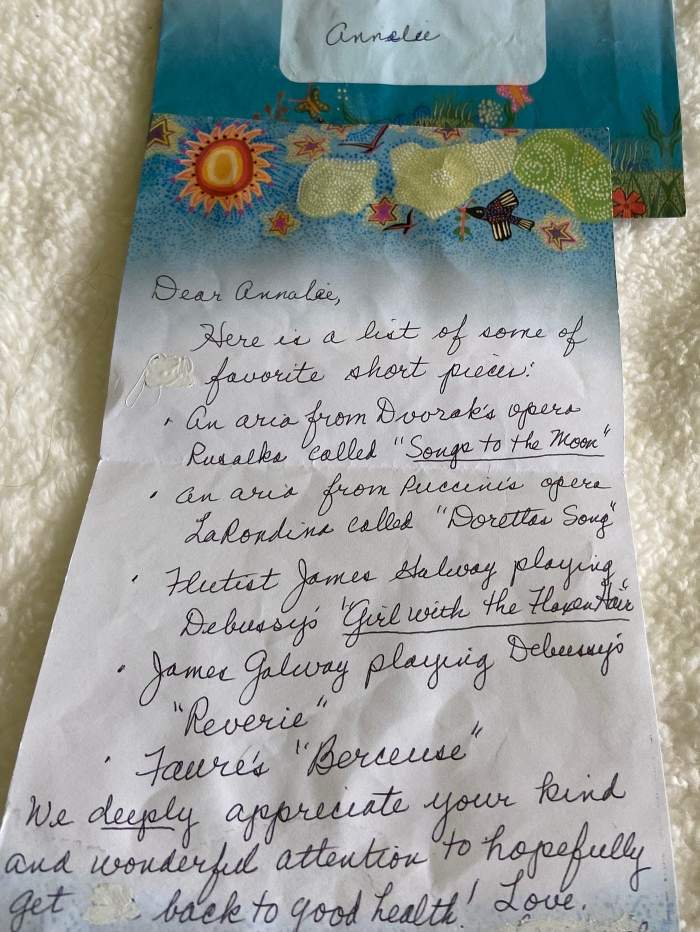 Annalee
Dear Annalee,
Here is a list of some of
favorite short pieces:
• An aria from Dvorak's opera
Rusalka called "Songs to the Moon"
• An aria from Puccini's opera
LaRondina called "Dorettas Song"
• Flutist James Galway playing
Debussy's "Girl with the Flaxen Hair"
• James Galway playing Debussy's
"Reverie"
• Faure's "Berceuse"
We deeply appreciate your kind
and wonderful attention to hopefully
get back to good health! Love,